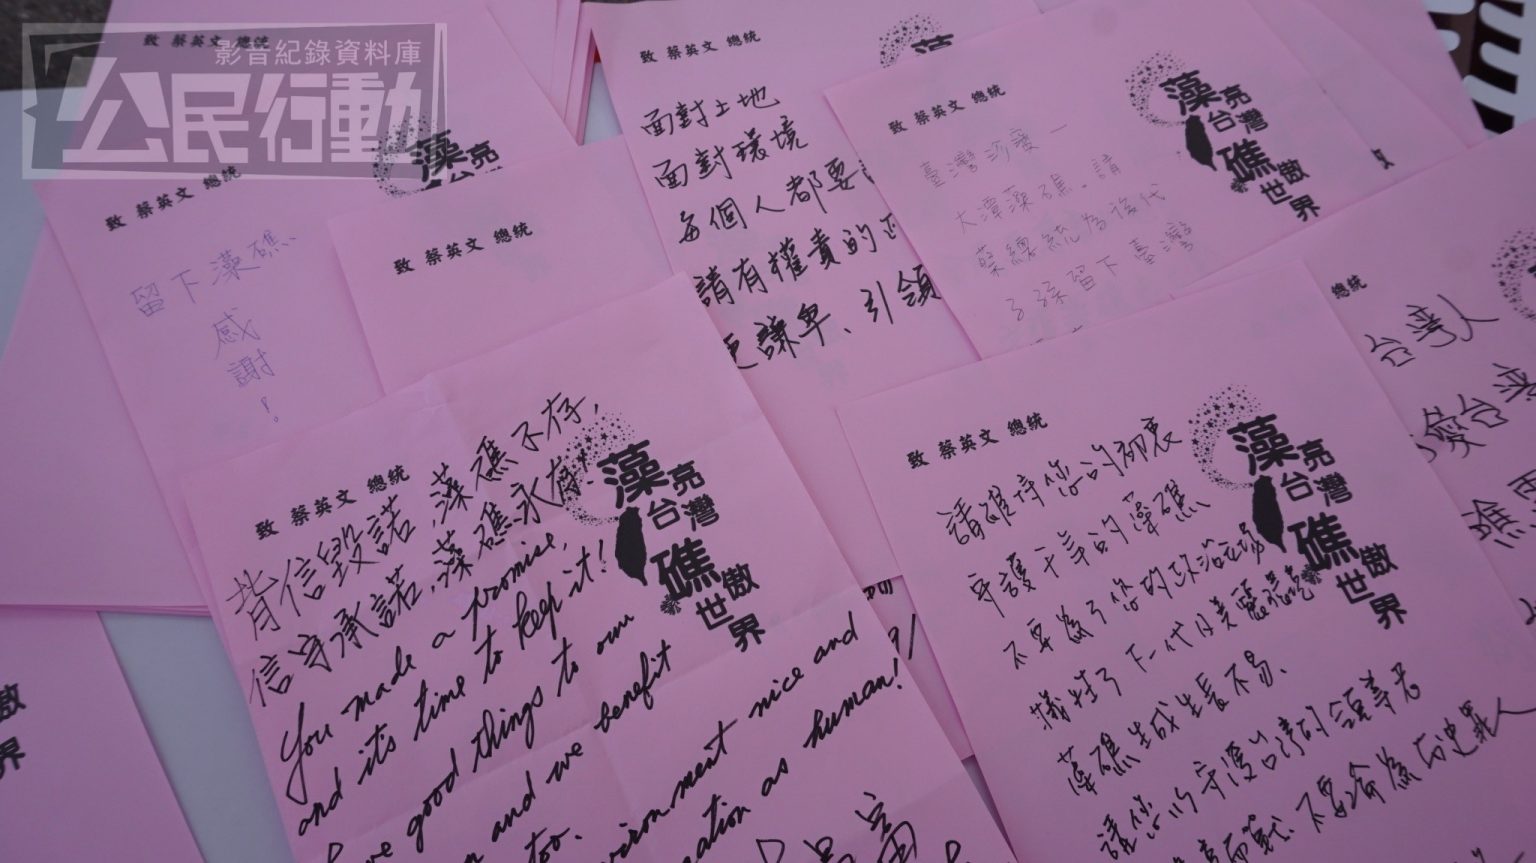 影音紀錄資料庫
公民行動
致 蔡英文 總統
致 蔡英文 總統
留下藻礁
感
謝
!
致 蔡英文 總統
致 蔡英文 總統
面對土地
面對環境
每個人都要
請有權責的
更謙卑、引領
致 蔡英文 總統
藻亮
台灣
礁傲
世界
大潭藻礁。請
蔡總統為後代
子孫留下臺灣
總統
台灣人
愛台灣
致 蔡英文 總統
藻亮
台灣
礁傲
世界
背信毀諾,藻礁不存,
信守承諾,藻礁永存!
You made a promise,
and it's time to keep it!
good things to our
and we benefit
too.
nice and
as human!
致 蔡英文 總統
藻亮
台灣
礁傲
世界
請維持您的初衷
守護千年的藻礁
不要為了您的政治立場
犧牲了下一代
藻礁生成生長不易、
請您以守護台灣的領導者
傲
界